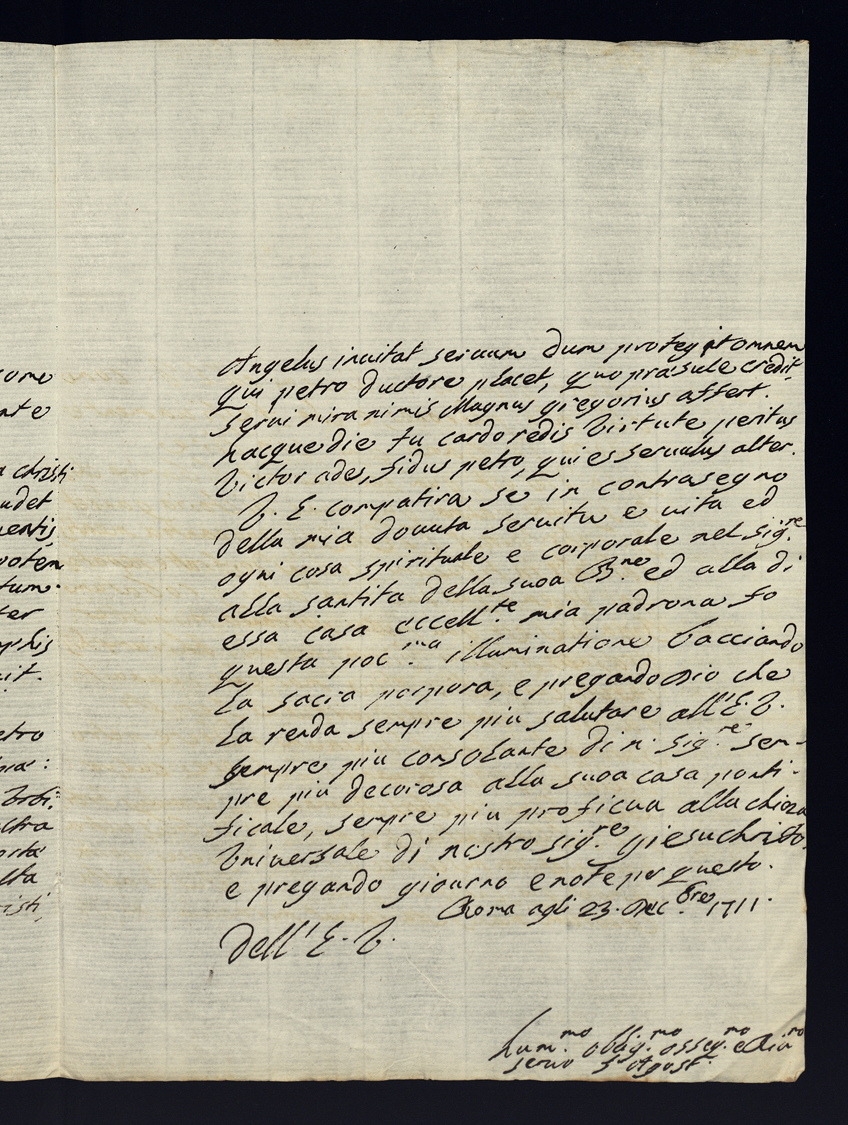 come
nte
a christi
udet
mentis
poten
tum.
ter
mphis
uit.
etro
pia:
Orbi,
ctra
orta
lta
risti,
Angelus inuitat seruum dum protegit omnem
qui petro ductore placet, quo præsule credit.
serui mira nimis Magnus gregorius affert.
hacque die tu cardo redis Virtute peritus
Victor ades, fidus petro, qui es seruatus alter.
V. E. compatira se in contrasegno
della mia douuta seruitu e uita ed
ogni cosa spirituale e corporale nel sig.re
alla santita della suoa B.ne ed alla di
essa casa eccell.te mia padrona fo
questa poc.ma illuminatione bacciando
la sacra porpora, e pregando Dio che
La renda sempre piu salutare all'E.V.
sempre piu consolante di n. sig.re sem-
pre piu decorosa alla suoa casa ponti-
ficale, sempre piu proficua alla chiesa
Vniuersale di nostro sig.re giesu christo.
e pregando giourno e note per questo.
Roma agli 23. Dec.bre 1711.
Dell'E.V.
hum.mo oblig.mo osseq.mo e
seruo